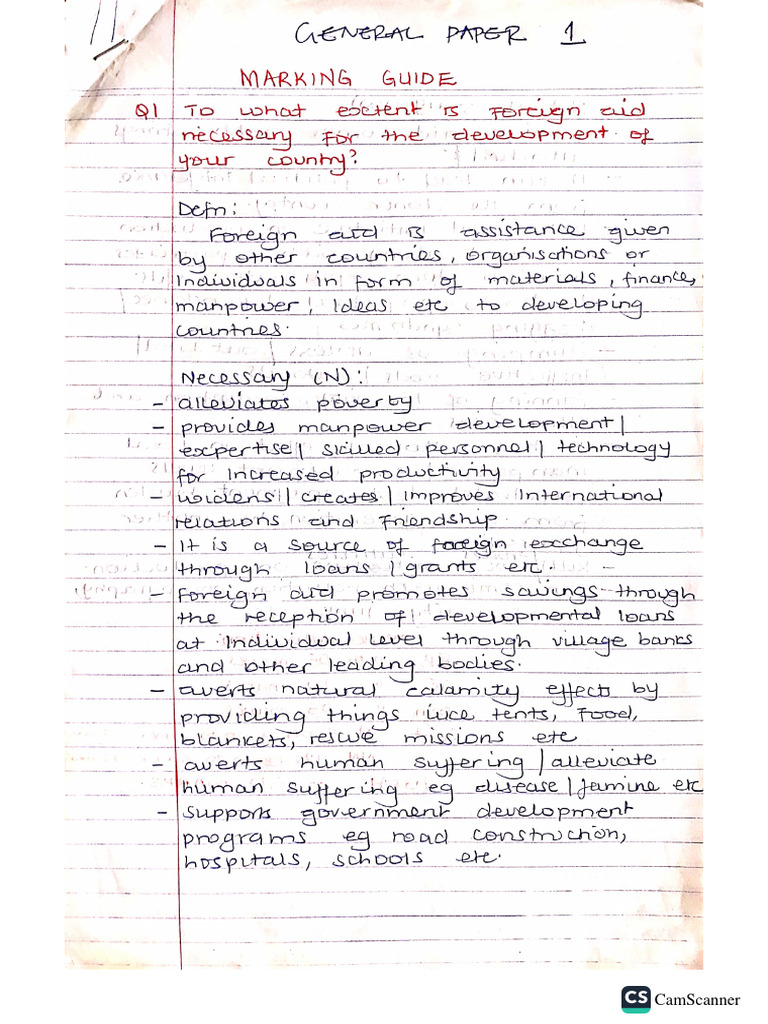 GENERAL PAPER 1
MARKING GUIDE
Q1 To what extent is Foreign aid
necessary for the development of
your country?
Defn:
Foreign aid is assistance given
by other countries, organisations or
Individuals in form of materials, finance,
manpower, Ideas etc to developing
countries.
Necessary (N):
- alleviates poverty
- provides manpower development/
expertise/ skilled personnel/ technology
for increased productivity
- widens/creates/improves International
relations and Friendship
- It is a source of foreign exchange
through loans/grants etc
- Foreign aid promotes savings through
the reception of developmental loans
at Individual level through village banks
and other leading bodies.
- averts natural calamity effects by
providing things like tents, Food,
blankets, rescue missions etc
- averts human suffering/alleviate
human suffering eg disease/famine etc
- supports government development
programs eg road construction,
hospitals, schools etc.
CS CamScanner